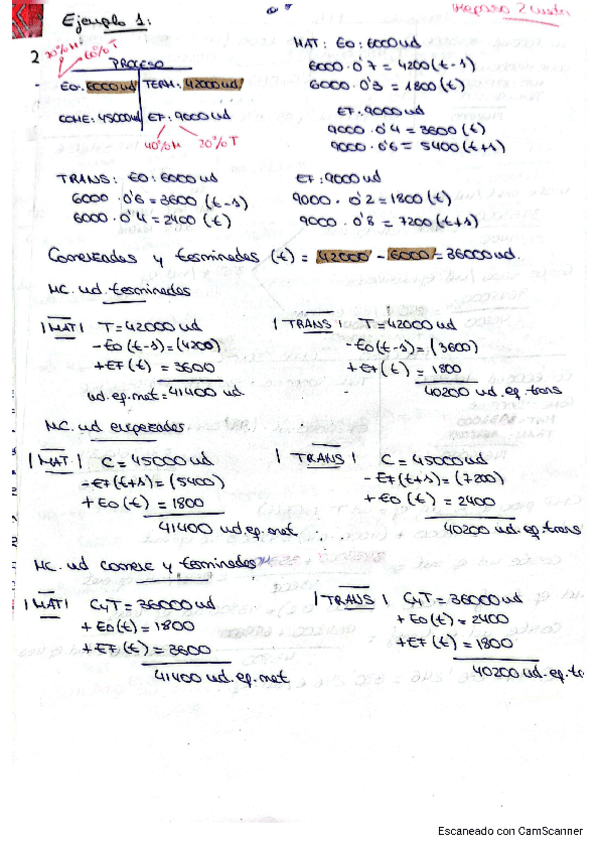 Repaso 2
Ejemplo 1:
2
70%M 60%T
PROCESO
EO: 6000ud TERM: 42000ud
COME: 45000ud EF: 9000ud
40%M 20%T
MAT: EO: 6000ud
6000 · 0'7 = 4200 (t-1)
6000 · 0'3 = 1800 (t)
EF: 9000ud
9000 · 0'4 = 3600 (t)
9000 · 0'6 = 5400 (t+1)
TRANS: EO: 6000 ud
6000 · 0'6 = 3600 (t-1)
6000 · 0'4 = 2400 (t)
EF: 9000ud
9000 · 0'2 = 1800 (t)
9000 · 0'8 = 7200 (t+1)
Comenzadas y terminadas (t) = 42000 - 6000 = 36000 ud.
MC. ud terminadas
|MAT| T = 42000 ud
- EO (t-1) = (4200)
+ EF (t) = 3600
ud. eq. mat = 41400 ud
|TRANS| T = 42000 ud
- EO (t-1) = (3600)
+ EF (t) = 1800
40200 ud. eq. trans
MC. ud empezadas
|MAT| C = 45000 ud
- EF (t+1) = (5400)
+ EO (t) = 1800
41400 ud. eq. mat
|TRANS| C = 45000 ud
- EF (t+1) = (7200)
+ EO (t) = 2400
40200 ud. eq. trans
MC. ud comenz y terminadas
|MAT| CyT = 36000 ud
+ EO (t) = 1800
+ EF (t) = 3600
41400 ud. eq. mat
|TRANS| CyT = 36000 ud
+ EO (t) = 2400
+ EF (t) = 1800
40200 ud. eq. tra
Escaneado con CamScanner